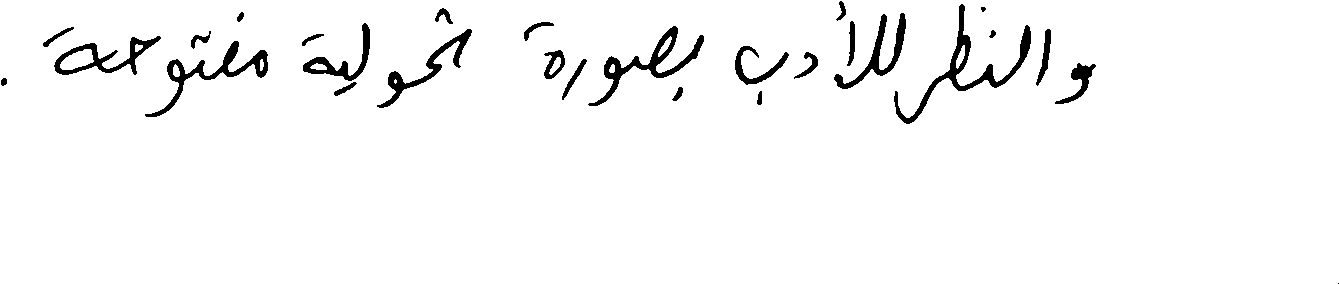 والنظر للأدب بصورة شمولية مفتوحة .